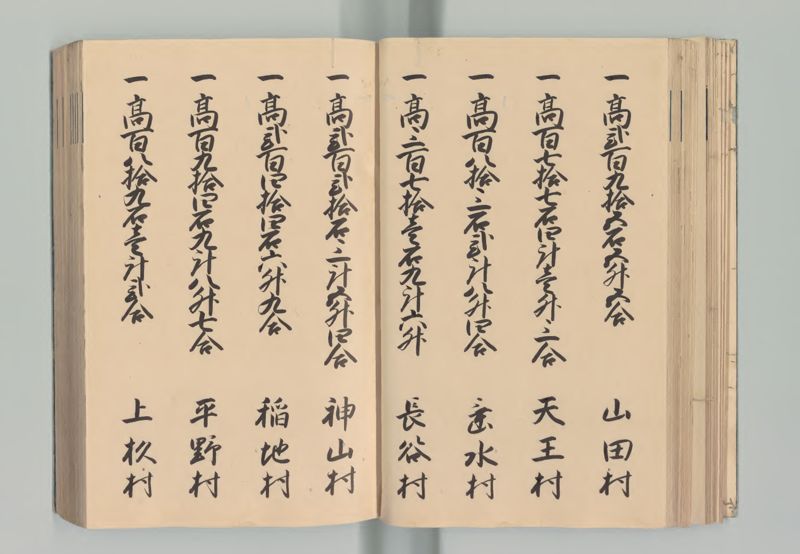 一高弐百九拾五石五升五合 山田村
一高百七拾七石四斗壱升三合 天王村
一高百八拾三石弐斗八升四合 垂水村
一高三百七拾壱石九斗六升 長谷村
一高弐百弐拾石三斗五升四合 神山村
一高弐百四拾四石六升九合 稲地村
一高百九拾四石九斗八升七合 平野村
一高百八拾九石壱斗弐合 上杉村